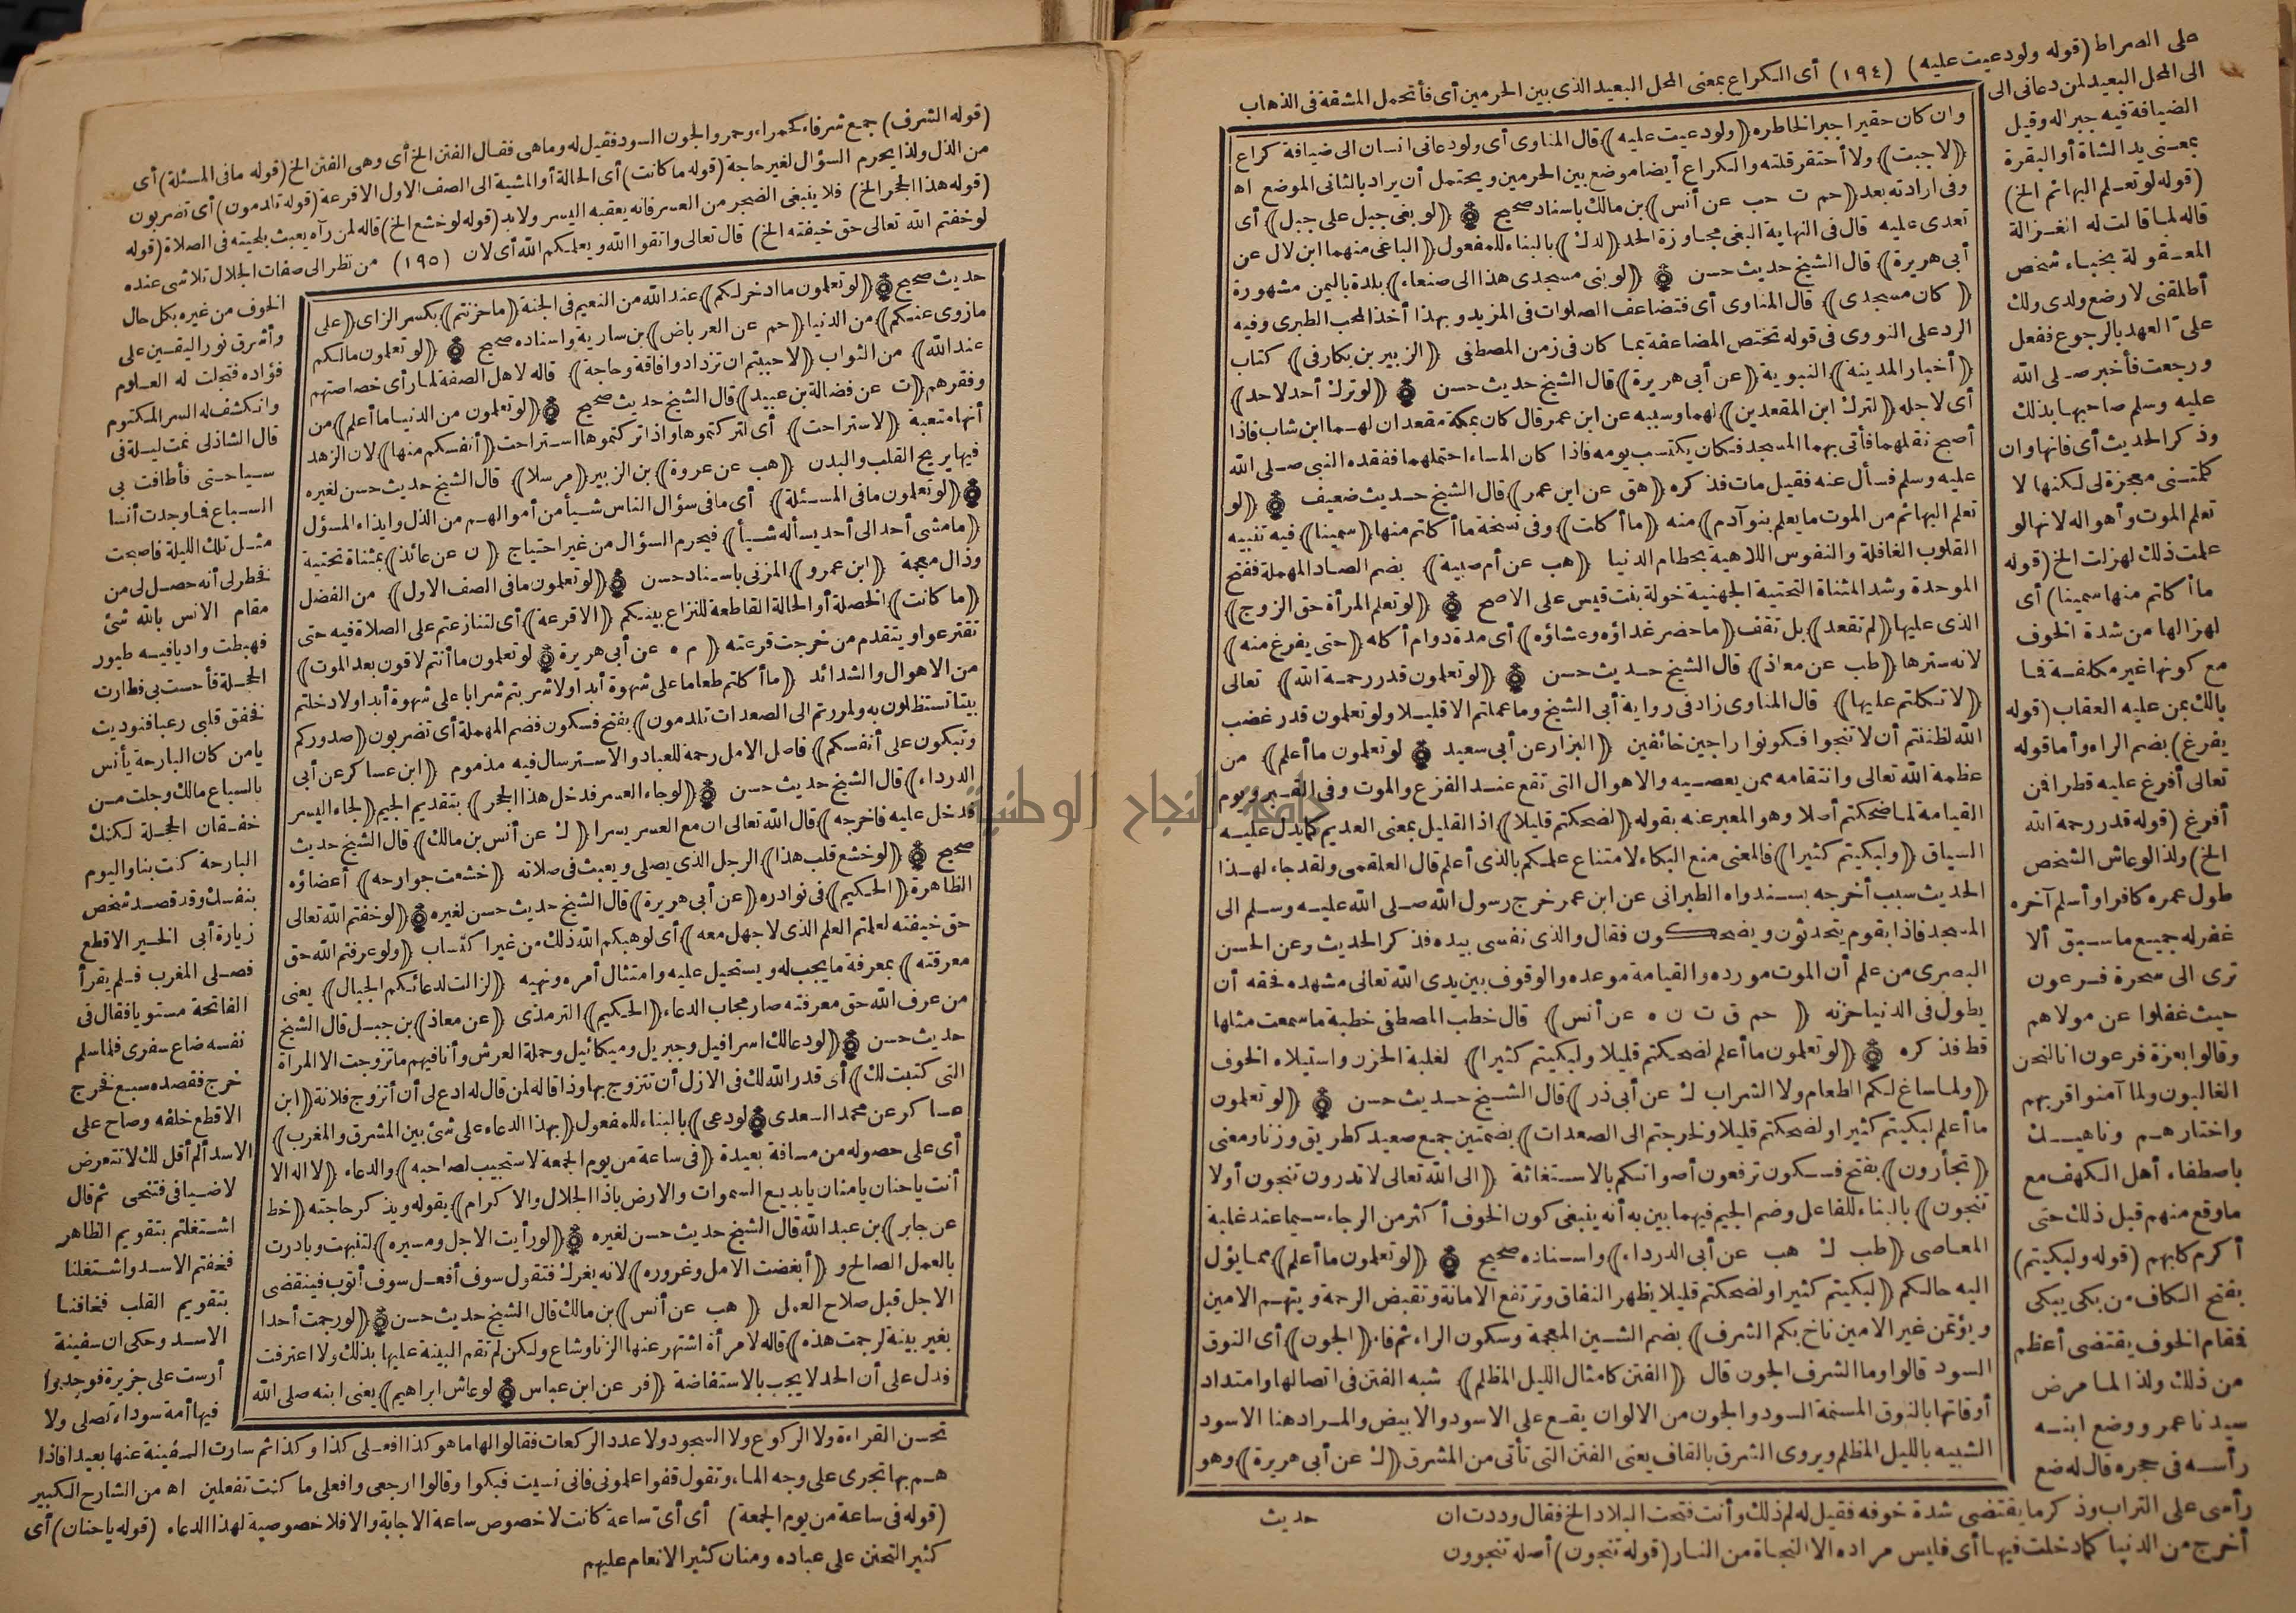 على الصراط (قوله ولو دعيت عليه) (١٩٤) أى الكراع بمعنى المحل البعيد الذى بين الحرمين أى فأتحمل المشقة فى الذهاب
الى المحل البعيد لمن دعانى الى
الضيافة فيه جبرا له وقيل
بمعنى يد الشاة أو البقرة
(قوله لو تعلم البهائم الخ)
قاله لما قالت له الغزالة
المعقولة بخباء شخص
أطلقنى لارضع ولدى ولك
على العهد بالرجوع ففعل
ورجعت فأخبر صلى الله
عليه وسلم صاحبها بذلك
وذكر الحديث أى فانها وان
كلمتنى معجزة لى لكنها لا
تعلم الموت وأهواله لانها لو
علمت ذلك لهزلت الخ (قوله
ما أكلتم منها سمينا) أى
لهزالها من شدة الخوف
مع كونها غير مكلفة فما
بالك بمن عليه العقاب (قوله
يفرغ) بضم الراء وأما قوله
تعالى أفرغ عليه قطرا فمن
أفرغ (قوله قدر رحمة الله
الخ) ولذا لو عاش الشخص
طول عمره كافرا وأسلم آخره
غفر له جميع ما سبق ألا
ترى الى سحرة فرعون
حيث غفلوا عن مولاهم
وقالوا بعزة فرعون انا لنحن
الغالبون ولما آمنوا قربهم
واختارهم وناهيك
باصطفاء أهل الكهف مع
ما وقع منهم قبل ذلك حتى
أكرم كلبهم (قوله ولبكيتم)
بفتح الكاف من بكى يبكى
فقام الخوف يقتضى أعظم
من ذلك ولذا لما مرض
سيدنا عمر ووضع ابنه
رأسه فى حجره قال له ضع
رأسى على التراب وذكر ما يقتضى شدة خوفه فقيل له لم ذلك وأنت فتحت البلاد الخ فقال وددت ان
أخرج من الدنيا كما دخلت فيها أى فليس مراده الا النجاة من النار (قوله تنجون) أصله تنجوون
وان كان حقيرا جبرا لخاطره (ولو دعيت عليه) قال المناوى أى ولو دعانى انسان الى ضيافة كراع
(لاجبت) ولا أحتقر قلته والكراع أيضا موضع بين الحرمين ويحتمل أن يراد بالثانى الموضع اه
وفى ارادته بعد (حم ت حب عن أنس) بن مالك باسناد صحيح (لو بغى جبل على جبل) أى
تعدى عليه قال فى النهاية البغى مجاوزة الحد (لدك) بالبناء للمفعول (الباغى منهما ابن لال عن
أبى هريرة) قال الشيخ حديث حسن (لو بنى مسجدى هذا الى صنعاء) بلدة باليمن مشهورة
(كان مسجدى) قال المناوى أى فتضاعف الصلوات فى المزيد وبهذا أخذ المحب الطبرى وفيه
الرد على النووى فى قوله تختص المضاعفة بما كان فى زمن المصطفى (الزبير بن بكار فى) كتاب
(أخبار المدينة) النبوية (عن أبى هريرة) قال الشيخ حديث حسن (لو ترك أحد لاحد)
أى لاجله (لترك ابن المقعدين) لهما وسببه عن ابن عمر قال كان بمكة مقعدان لهما ابن شاب فاذا
أصبح نقلهما فأتى بهما المسجد فكان يكتسب يومه فاذا كان المساء احتملهما ففقده النبى صلى الله
عليه وسلم فسأل عنه فقيل مات فذكره (هق عن ابن عمر) قال الشيخ حديث ضعيف (لو
تعلم البهائم من الموت ما يعلم بنو آدم) منه (ما أكلت) وفى نسخة ما أكلتم منها (سمينا) فيه تنبيه
القلوب الغافلة والنفوس اللاهية بحطام الدنيا (هب عن أم صبية) بضم الصاد المهملة ففتح
الموحدة وشد المثناة التحتية الجهنية خولة بنت قيس على الاصح (لو تعلم المرأة حق الزوج)
الذى عليها (لم تقعد) بل تقف (ما حضر غداؤه وعشاؤه) أى مدة دوام أكله (حتى يفرغ منه)
لانه سترها (طب عن معاذ) قال الشيخ حديث حسن (لو تعلمون قدر رحمة الله) تعالى
(لاتكلتم عليها) قال المناوى زاد فى رواية أبى الشيخ وما عملتم الا قليلا ولو تعلمون قدر غضب
الله لظننتم أن لا تنجوا فكونوا راجين خائفين (البزار عن أبى سعيد لو تعلمون ما أعلم) من
عظمة الله تعالى وانتقامه ممن يعصيه والاهوال التى تقع عند الفزع والموت وفى القبر ويوم
القيامة لما ضحكتم أصلا وهو المعبر عنه بقوله (لضحكتم قليلا) اذ القليل بمعنى العديم كما يدل عليه
السياق (ولبكيتم كثيرا) فالمعنى منع البكاء لامتناع علمكم بالذى أعلم قال العلقمى ولقد جاء لهذا
الحديث سبب أخرجه بسند واه الطبرانى عن ابن عمر خرج رسول الله صلى الله عليه وسلم الى
المسجد فاذا بقوم يتحدثون ويضحكون فقال والذى نفسى بيده فذكر الحديث وعن الحسن
البصرى من علم أن الموت مورده والقيامة موعده والوقوف بين يدى الله تعالى مشهده فحقه أن
يطول فى الدنيا حزنه (حم ق ت ن ه عن أنس) قال خطب المصطفى خطبة ما سمعت مثلها
قط فذكره (لو تعلمون ما أعلم لضحكتم قليلا ولبكيتم كثيرا) لغلبة الحزن واستيلاء الخوف
(ولما ساغ لكم الطعام ولا الشراب ك عن أبى ذر) قال الشيخ حديث حسن (لو تعلمون
ما أعلم لبكيتم كثيرا ولضحكتم قليلا ولخرجتم الى الصعدات) بضمتين جمع صعيد كطريق وزنا ومعنى
(تجأرون) بفتح فسكون ترفعون أصواتكم بالاستغاثة (الى الله تعالى لا تدرون تنجون أولا
تنجون) بالبناء للفاعل وضم الجيم فيهما بين به أنه ينبغى كون الخوف أكثر من الرجاء سيما عند غلبة
المعاصى (طب ك هب عن أبى الدرداء) واسناده صحيح (لو تعلمون ما أعلم) مما يؤل
اليه حالكم (لبكيتم كثيرا ولضحكتم قليلا يظهر النفاق وترتفع الامانة وتقبض الرحمة ويتهم الامين
ويؤتمن غير الامين ناخ بكم الشرف) بضم الشين المعجمة وسكون الراء ثم فاء (الجون) أى النوق
السود قالوا وما الشرف الجون قال (الفتن كامثال الليل المظلم) شبه الفتن فى اتصالها وامتداد
أوقاتها بالنوق المسنمة السود والجون من الالوان يقع على الاسود والابيض والمراد هنا الاسود
الشبيه بالليل المظلم ويروى الشرق بالقاف يعنى الفتن التى تأتى من المشرق (ك عن أبى هريرة) وهو
حديث
(قوله الشرف) جمع شرفاء كحمراء وحمر والجون السود فقيل له وما هى فقال الفتن الخ أى وهى الفتن الخ (قوله ما فى المسئلة) أى
من الذل ولذا يحرم السؤال لغير حاجة (قوله ما كانت) أى الحالة أو المشية الى الصف الاول الا قرعة (قوله تلدمون) أى تضربون
(قوله هذا الجحر الخ) فلا ينبغى الضجر من العسر فانه يعقبه اليسر ولا بد (قوله لو خشع الخ) قاله لمن رآه يعبث بلحيته فى الصلاة (قوله
لو خفتم الله تعالى حق خيفته الخ) قال تعالى واتقوا الله ويعلمكم الله أى لان (١٩٥) من نظر الى صفات الجلال تلاشى عنده
الخوف من غيره بكل حال
وأشرق نور اليقين على
فؤاده فتجلت له العلوم
وانكشف له السر المكتوم
قال الشاذلى نمت ليلة فى
سياحتى فأطافت بى
السباع فما وجدت أنسا
مثل تلك الليلة فاصبحت
فخطر لى أنه حصل لى من
مقام الانس بالله شئ
فهبطت واديا فيه طيور
الحجلة فأحست بى فطارت
فخفق قلبى رعبا فنوديت
يا من كان البارحة يأنس
بالسباع مالك وجلت من
خفقان الحجلة لكنك
البارحة كنت بنا واليوم
بنفسك وقد قصد شخص
زيارة أبى الخير الاقطع
فصلى المغرب فلم يقرأ
الفاتحة مستويا فقال فى
نفسه ضاع سفرى فلما سلم
خرج فقصده سبع فخرج
الاقطع خلفه وصاح على
الاسد ألم أقل لك لا تتعرض
لاضيافى فتنحى ثم قال
اشتغلتم بتقويم الظاهر
فخفتم الاسد واشتغلنا
بتقويم القلب فخافنا
الاسد وحكى ان سفينة
أرست على جزيرة فوجدوا
فيها أمة سوداء تصلى ولا
تحسن القراءة ولا الركوع ولا السجود ولا عدد الركعات فقالوا لها ما هو كذا افعلى كذا وكذا ثم سارت السفينة عنها بعيدا فاذا
هم بها تجرى على وجه الماء وتقول قفوا علمونى فانى نسيت فبكوا وقالوا ارجعى وافعلى ما كنت تفعلين اه من الشارح الكبير
(قوله فى ساعة من يوم الجمعة) أى أى ساعة كانت لا خصوص ساعة الاجابة والا فلا خصوصية لهذا الدعاء (قوله يا حنان) أى
كثير التحنن على عباده ومنان كثير الانعام عليهم
حديث صحيح (لو تعلمون ما ادخر لكم) عند الله من النعيم فى الجنة (ما حزنتم) بكسر الزاى (على
ما زوى عنكم) من الدنيا (حم عن العرباض) بن سارية واسناده صحيح (لو تعلمون مالكم
عند الله) من الثواب (لاحببتم ان تزدادوا فاقة وحاجة) قاله لاهل الصفة لما رأى خصاصتهم
وفقرهم (ت عن فضالة بن عبيد) قال الشيخ حديث صحيح (لو تعلمون من الدنيا ما أعلم) من
أنها متعبة (لاستراحت) أى لتركتموها واذا تركتموها استراحت (أنفسكم منها) لان الزهد
فيها يريح القلب والبدن (هب عن عروة) بن الزبير (مرسلا) قال الشيخ حديث حسن لغيره
(لو تعلمون ما فى المسئلة) أى ما فى سؤال الناس شيأ من أموالهم من الذل وايذاء المسؤل
(ما مشى أحد الى أحد يسأله شيأ) فيحرم السؤال من غير احتياج (ن عن عائذ) بمثناة تحتية
وذال معجمة (ابن عمرو) المزنى باسناد حسن (لو تعلمون ما فى الصف الاول) من الفضل
(ما كانت) الخصلة أو الحالة القاطعة للنزاع بينكم (الا قرعة) أى لتنازعتم على الصلاة فيه حتى
تقترعوا ويتقدم من خرجت قرعته (م ه عن أبى هريرة لو تعلمون ما أنتم لاقون بعد الموت)
من الاهوال والشدائد (ما أكلتم طعاما على شهوة أبدا ولا شربتم شرابا على شهوة أبدا ولا دخلتم
بيتا تستظلون به ولمررتم الى الصعدات تلدمون) بفتح فسكون فضم المهملة أى تضربون (صدوركم
وتبكون على أنفسكم) فاصل الامل رحمة للعباد والاسترسال فيه مذموم (ابن عساكر عن أبى
الدرداء) قال الشيخ حديث حسن (لو جاء العسر فدخل هذا الجحر) بتقديم الجيم (لجاء اليسر
فدخل عليه فاخرجه) قال الله تعالى ان مع العسر يسرا (ك عن أنس بن مالك) قال الشيخ حديث
صحيح (لو خشع قلب هذا) الرجل الذى يصلى ويعبث فى صلاته (خشعت جوارحه) أعضاؤه
الظاهرة (الحكيم) فى نوادره (عن أبى هريرة) قال الشيخ حديث حسن لغيره (لو خفتم الله تعالى
حق خيفته لعلمتم العلم الذى لا جهل معه) أى لوهبكم الله ذلك من غير اكتساب (ولو عرفتم الله حق
معرفته) بمعرفة ما يجب له ويستحيل عليه وامتثال أمره ونهيه (لزالت لدعائكم الجبال) يعنى
من عرف الله حق معرفته صار مجاب الدعاء (الحكيم) الترمذى (عن معاذ) بن جبل قال الشيخ
حديث حسن (لو دعا لك اسرافيل وجبريل وميكائيل وحملة العرش وأنا فيهم ما تزوجت الا المرأة
التى كتبت لك) أى قدر الله لك فى الازل أن تتزوج بها وذا قاله لمن قال له ادع لى أن أتزوج فلانة (ابن
عساكر عن محمد السعدى لو دعى) بالبناء للمفعول (بهذا الدعاء على شئ بين المشرق والمغرب)
أى على حصوله من مسافة بعيدة (فى ساعة من يوم الجمعة لاستجيب لصاحبه) والدعاء (لا اله الا
أنت يا حنان يا منان يا بديع السموات والارض يا ذا الجلال والاكرام) يقوله ويذكر حاجته (خط
عن جابر) بن عبد الله قال الشيخ حديث حسن لغيره (لو رأيت الاجل ومسيره) لتنبهت وبادرت
بالعمل الصالح و (أبغضت الامل وغروره) لانه يغرك فتقول سوف أفعل سوف أتوب فينقضى
الاجل قبل صلاح العمل (هب عن أنس) بن مالك قال الشيخ حديث حسن (لو رجمت أحدا
بغير بينة لرجمت هذه) قاله لامرأة اشتهر عنها الزنا وشاع ولكن لم تقم البينة عليها بذلك ولا اعترفت
فدل على أن الحد لا يجب بالاستفاضة (فر عن ابن عباس لو عاش ابراهيم) يعنى ابنه صلى الله
جامعة النجاح الوطنية